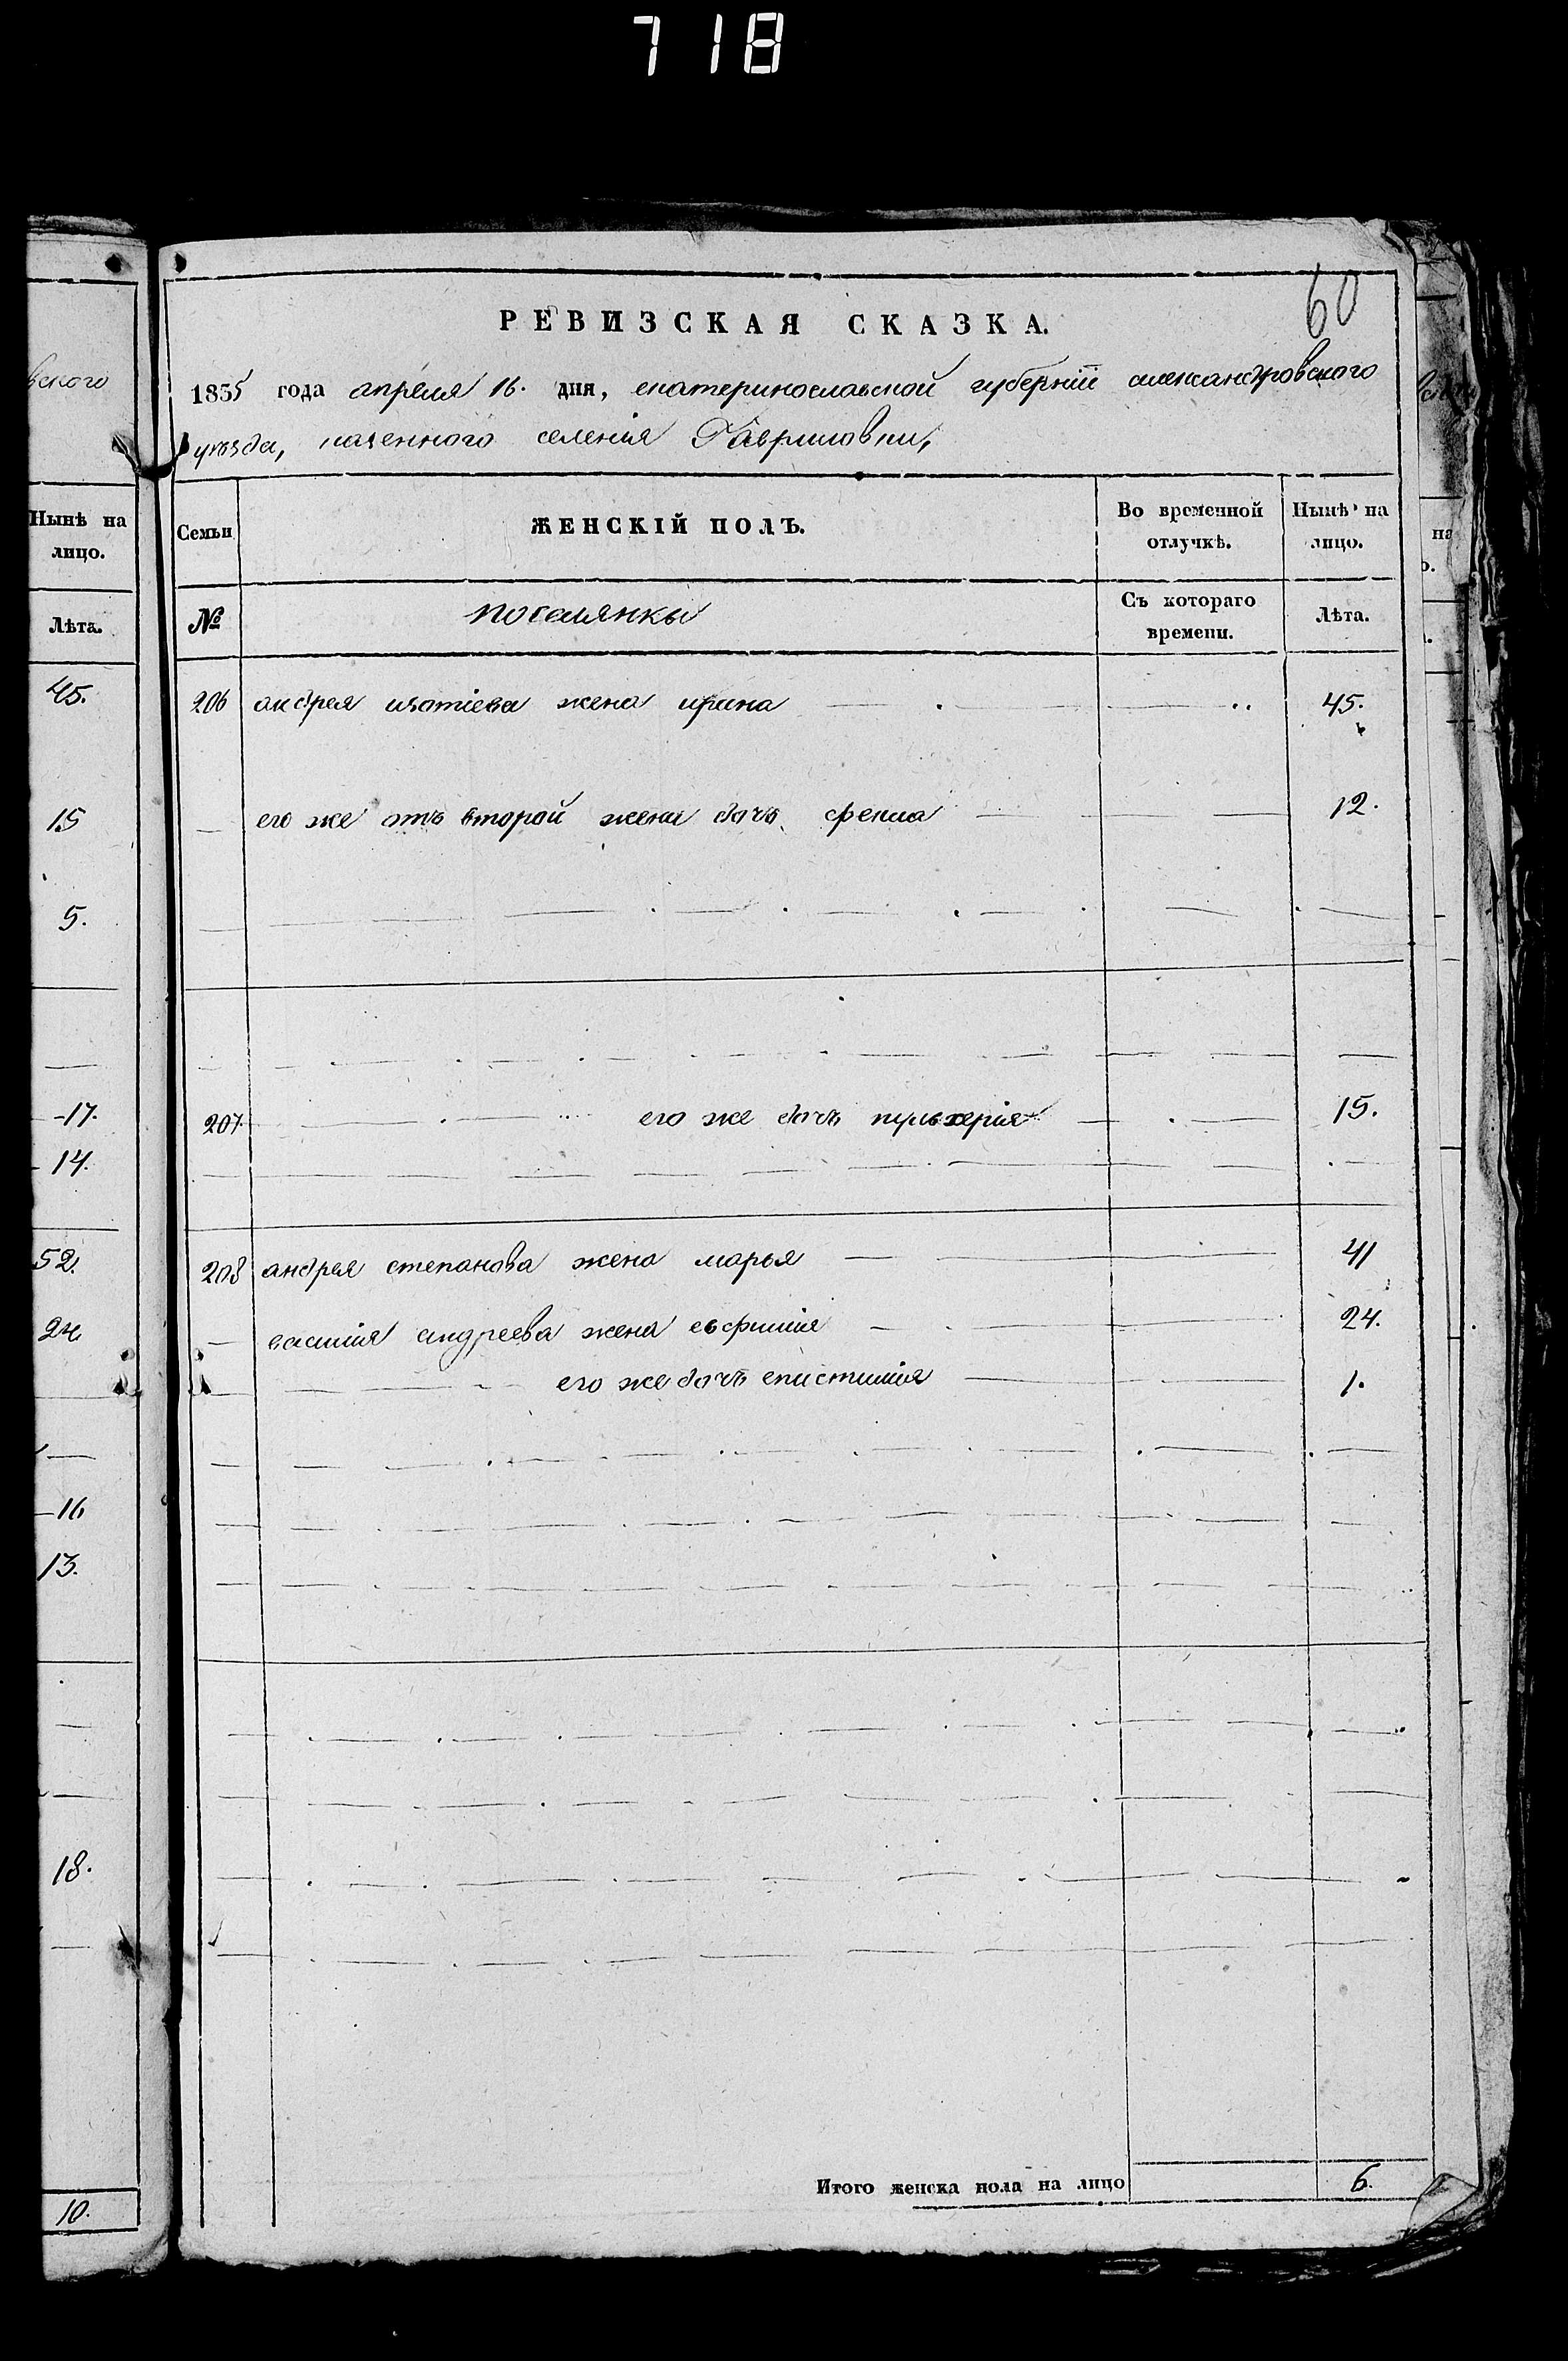 718
60
РЕВИЗСКАЯ СКАЗКА.
1835 года апреля 16. дня, екатеринославской губерніи александровского
уѣзда, казенного селенія Гавриловки,
Семьи ЖЕНСКІЙ ПОЛЪ. Во временной отлучкѣ. Нынѣ на лицо.
№ поселянки Съ котораго времени. Лѣта.
206 андрея игнатіева жена ирина 45.
его же отъ второй жены дочь фекла 12.
207. его же дочь пульхерія 15.
208 андрея степанова жена марья 41
василия андреева жена евфимия 24.
его же дочь епистимия 1.
Итого женска пола на лицо 6.
вского
Нынѣ на
лицо.
Лѣта.
45.
15
5.
17.
14.
52.
24
16
13.
18.
10.